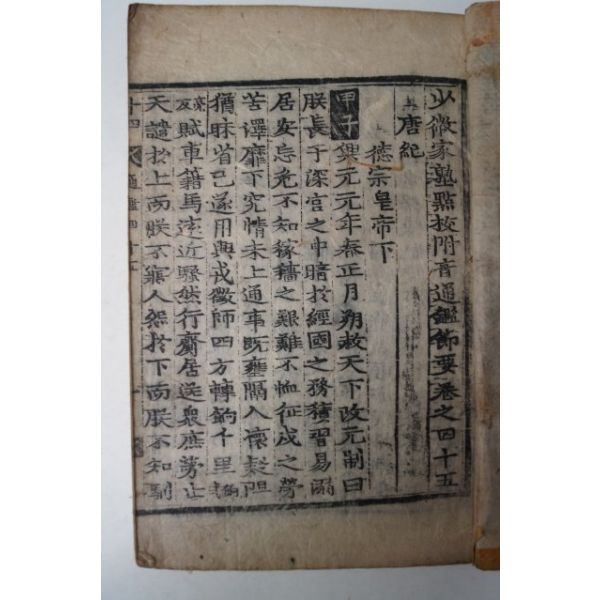 少微家塾點校附音通鑑節要卷之四十五
唐紀
德宗皇帝下
甲子興元元年春正月朔赦天下改元制曰
朕長于深宮之中暗於經國之務積習易溺
居安忘危不知稼穡之艱難不恤征戍之勞
苦澤靡下究情未上通事旣壅隔人懷疑阻
猶昧省己遂用興戎徵師四方轉餉千里
賦車籍馬遠近騷然行齎居送衆庶勞止
天譴於上而朕不寤人怨於下而朕不知馴
十四 通鑑四十五 一